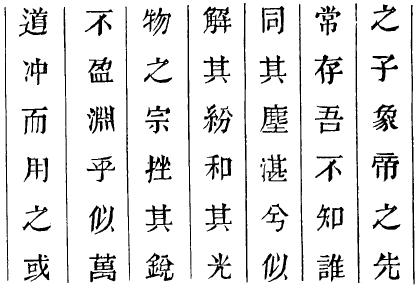 道冲而用之或
不盈淵乎似萬
物之宗挫其銳
解其紛和其光
同其塵湛兮似
常存吾不知誰
之子象帝之先